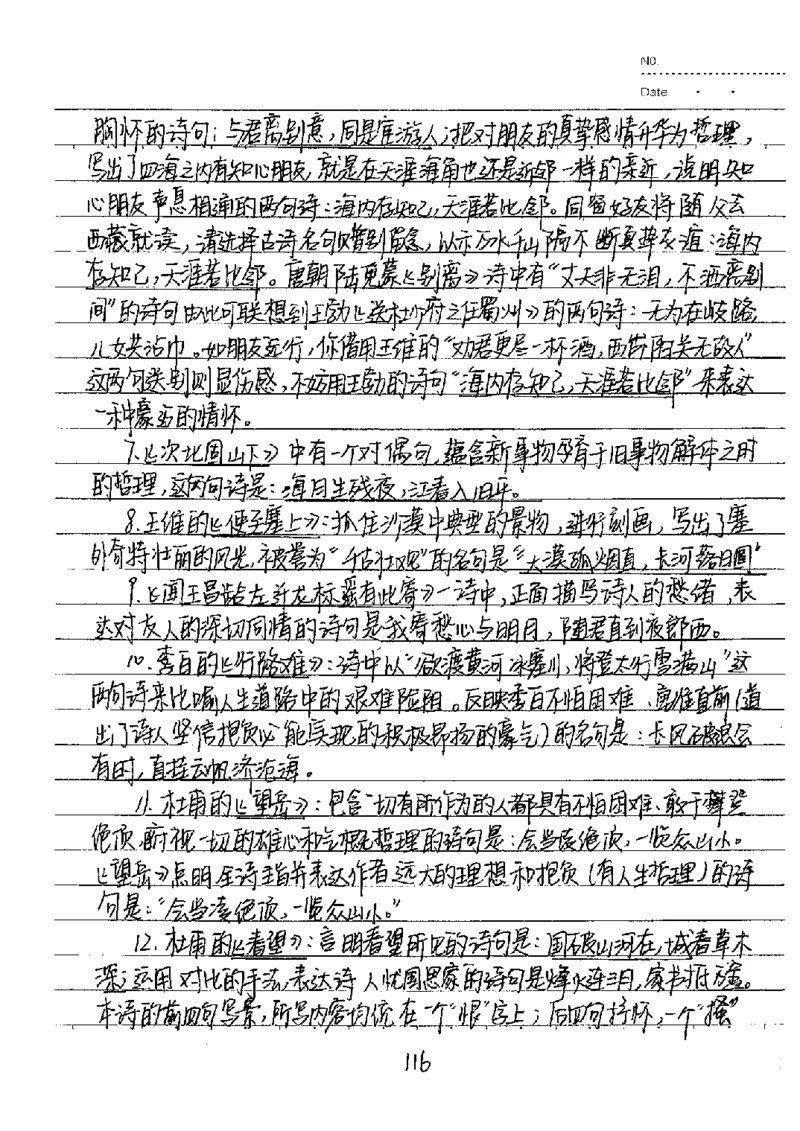 NO.
Date
胸怀的诗句；与君离别意，同是宦游人；把对朋友的真挚感情升华为哲理，
写出了四海之内有知心朋友，就是在天涯海角也还是近邻一样的亲近，说明知
心朋友声息相通的两句诗：海内存知己，天涯若比邻。同窗好友将随父去
西藏就读，请选择古诗名句赠别留念，以示万水千山隔不断真挚友谊：海内
存知己，天涯若比邻。唐朝陆龟蒙《别离》诗中有“丈夫非无泪，不洒离别
间”的诗句由此可联想到王勃《送杜少府之任蜀州》的两句诗：无为在歧路，
儿女共沾巾。如朋友远行，你借用王维的“劝君更尽一杯酒，西出阳关无故人”
这两句送别则显伤感，不妨用王勃的诗句“海内存知己，天涯若比邻”来表达
一种豪迈的情怀。
7.《次北固山下》中有一个对偶句，蕴含新事物孕育于旧事物解体之时
的哲理，这两句诗是：海日生残夜，江春入旧年。
8.王维的《使至塞上》：抓住沙漠中典型的景物，进行刻画，写出了塞
外奇特壮丽的风光，被誉为“千古壮观”的名句是“大漠孤烟直，长河落日圆”
9.《闻王昌龄左迁龙标遥有此寄》一诗中，正面描写诗人的愁绪，表
达对友人的深切同情的诗句是我寄愁心与明月，随君直到夜郎西。
10.李白的《行路难》：诗中以“欲渡黄河冰塞川，将登太行雪满山”这
两句诗来比喻人生道路中的艰难险阻。反映李白不怕困难、勇往直前（道
出了诗人坚信抱负必能实现的积极昂扬的豪气）的名句是：长风破浪会
有时，直挂云帆济沧海。
11.杜甫的《望岳》：包含一切有所作为的人都具有不怕困难、敢于攀登
绝顶，俯视一切的雄心和气概哲理的诗句是：会当凌绝顶，一览众山小。
《望岳》点明全诗主旨并表达作者远大的理想和抱负（有人生哲理）的诗
句是：“会当凌绝顶，一览众山小。”
12.杜甫的《春望》：言明春望所见的诗句是：国破山河在，城春草木
深；运用对比的手法，表达诗人忧国思家的诗句是烽火连三月，家书抵万金。
本诗的前四句写景，所写内容均统在一个“恨”字上；后四句抒怀，一个“搔”
116